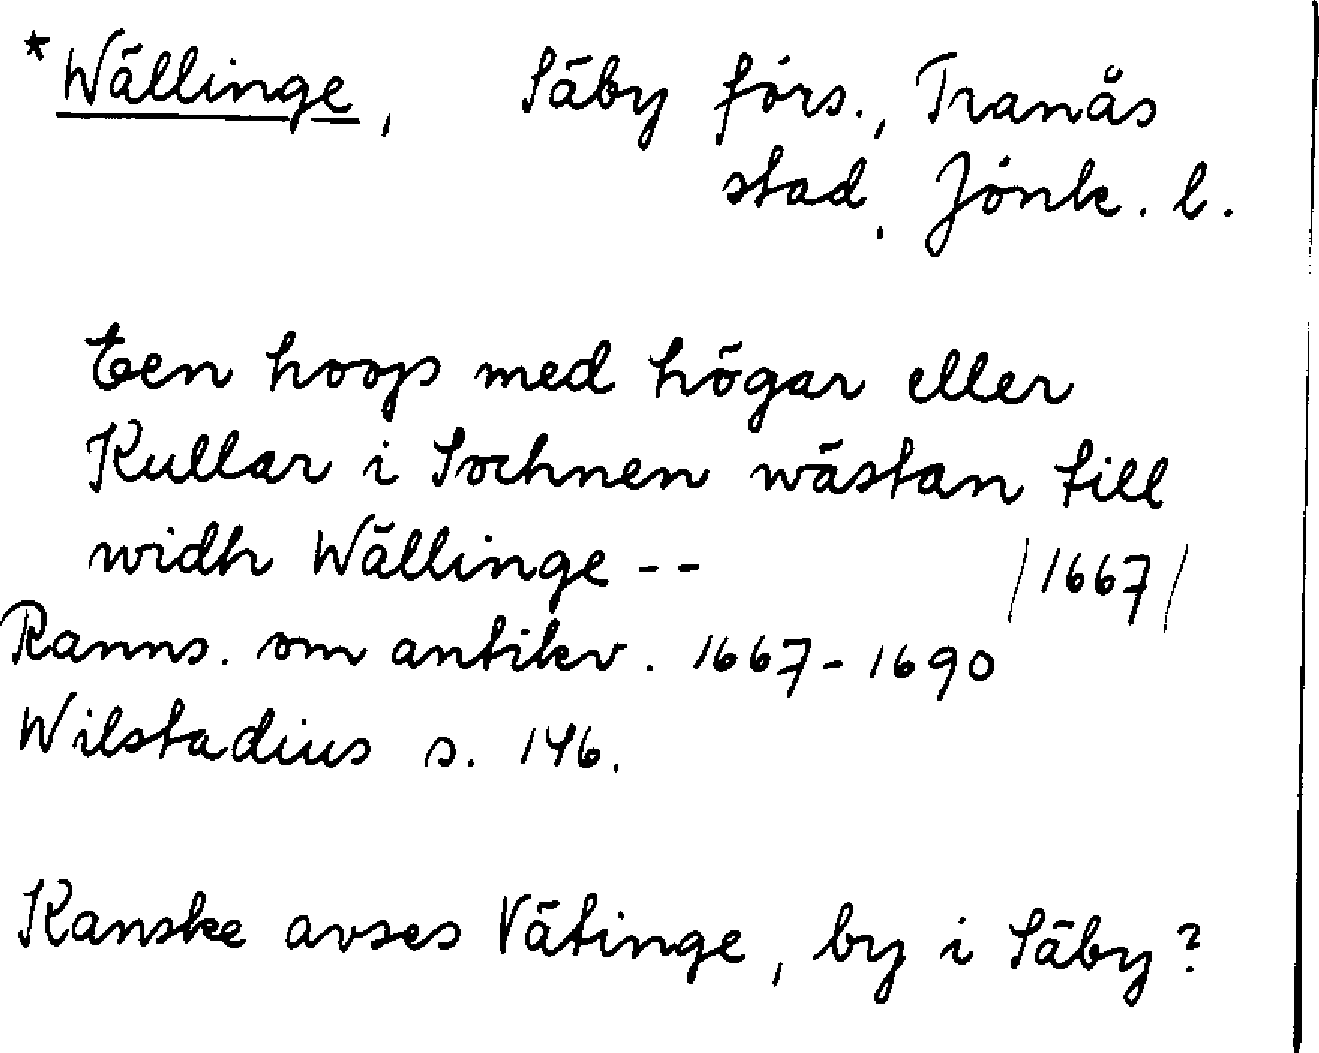 *Wällinge, Säby förs., Tranås
stad, Jönk. l.
Een hoop med högar eller
Kullar i Sochnen wästan till
widh Wällinge -- /1667/
Ranns. om antikv. 1667-1690
Wilstadius s. 146.
Kanske avses Vätinge, by i Säby?